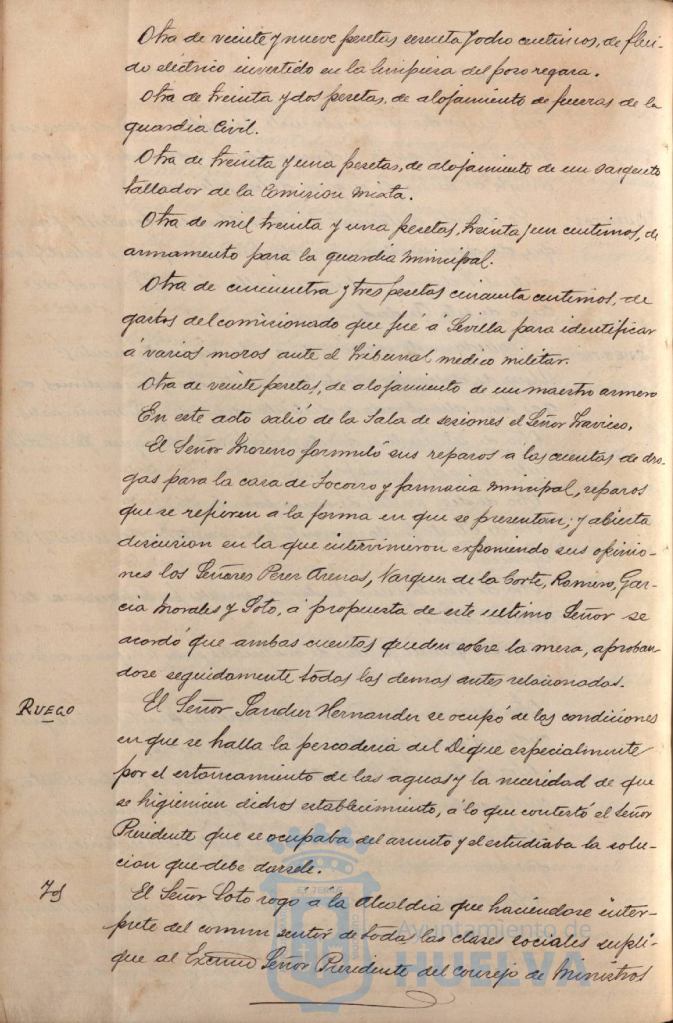 Otra de veinte y nueve pesetas sesenta y ocho centimos, de flui-
do eléctrico invertido en la limpieza del pozo regara.
Otra de treinta y dos pesetas, de alojamiento de fuerzas de la
guardia Civil.
Otra de treinta y una pesetas, de alojamiento de un sargento
tallador de la Comision Mixta.
Otra de mil treinta y una pesetas, treinta y un centimos, de
armamento para la guardia municipal.
Otra de cincuenta y tres pesetas cincuenta centimos, de
gastos del comisionado que fué á Sevilla para identificar
á varios mozos ante el Tribunal medico militar.
Otra de veinte pesetas, de alojamiento de un maestro armero
En este acto salió de la Sala de sesiones el Señor Travieso.
El Señor Moreno formuló sus reparos á las cuentas de dro-
gas para la casa de Socorro y farmacia municipal, reparos
que se refieren á la forma en que se presentan; y abierta
discusion en la que intervinieron exponiendo sus opinio-
nes los Señores Perez Arenas, Vazquez de la Corte, Romero, Gar-
cia Morales y Soto, á propuesta de este ultimo Señor se
acordó que ambas cuentas queden sobre la mesa, aproban-
dose seguidamente todas las demas antes relacionadas.
RUEGO
El Señor Sanchez Hernandez se ocupó de las condiciones
en que se halla la pescaderia del Dique especialmente
por el estancamiento de las aguas y la necesidad de que
se higienicen dichos establecimiento, á lo que contestó el Señor
Presidente que se ocupaba del asunto y el estudiaba la solu-
cion que debe darsele.
Yd
El Señor Soto rogó á la Alcaldia que haciendose inter-
prete del comun sentir de todas las clases sociales supli-
que al Excmo Señor Presidente del Consejo de Ministros
Ayuntamiento de
HUELVA